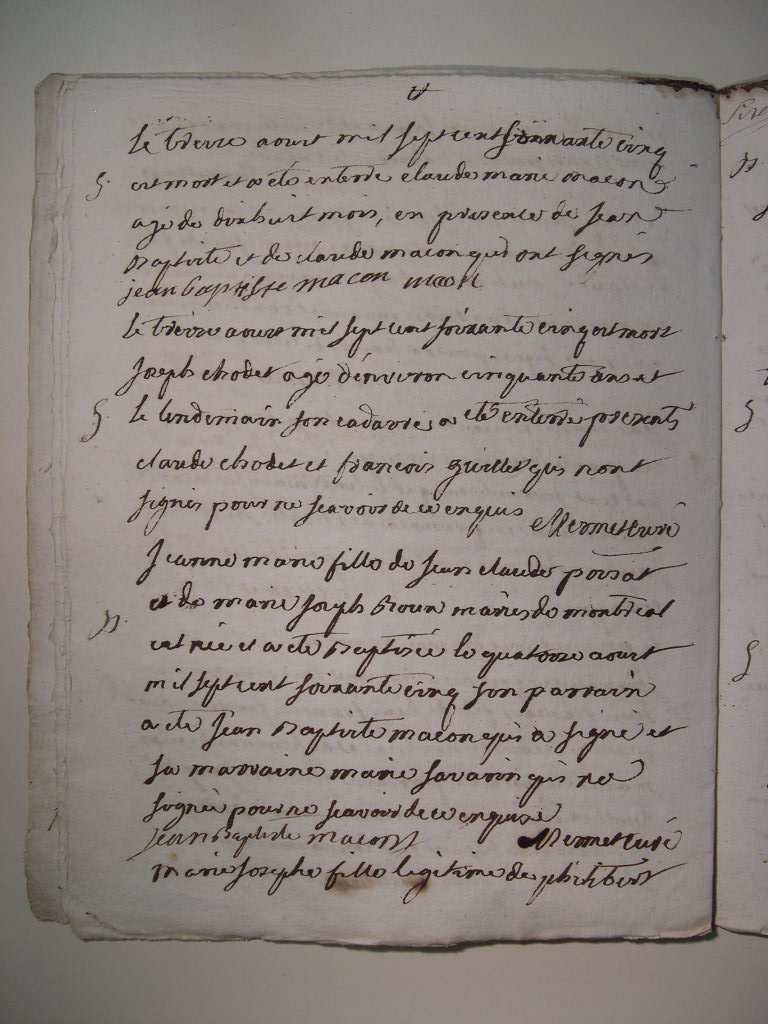 le treize aoust mil sept cent soixante cinq
S. est mort et a eté enterré claude marie macon
agé de dixhuit mois, en presence de Jean
Baptiste et de claude macon qui ont signés
jean baptiste macon macon
le treize aoust mil sept cent soixante cinq est mort
Joseph chodet agé d'environ cinquante ans et
S. le lendemain son cadavre a eté enterré presents
claude chodet et francois guillet qui n'ont
signés pour ne scavoir de ce enquis Mermet curé
Jeanne marie fille de Jean claude poisat
et de marie Joseph mariés de montreal
N. est née et a eté Baptisée le quatorze aoust
mil sept cent soixante cinq son parrain
a eté Jean Baptiste macon qui a signé et
sa marraine marie savarin qui ne
signée pour ne scavoir de ce enquise
jean baptiste macon Mermet curé
marie Josephe fille legitime de philibert